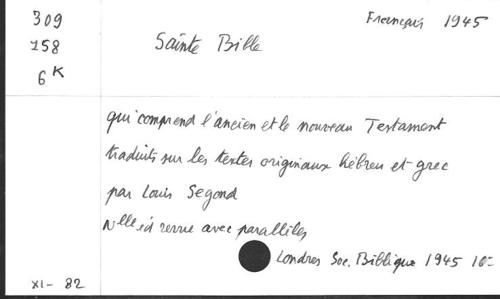 309 Français 1945
158 Sainte Bible
6 K
qui comprend l'ancien et le nouveau Testament
traduits sur les textes originaux hébreu et grec
par Louis Segond
Nlle éd revue avec parallèles
Londres Soc. Biblique 1945 16-
XI- 82